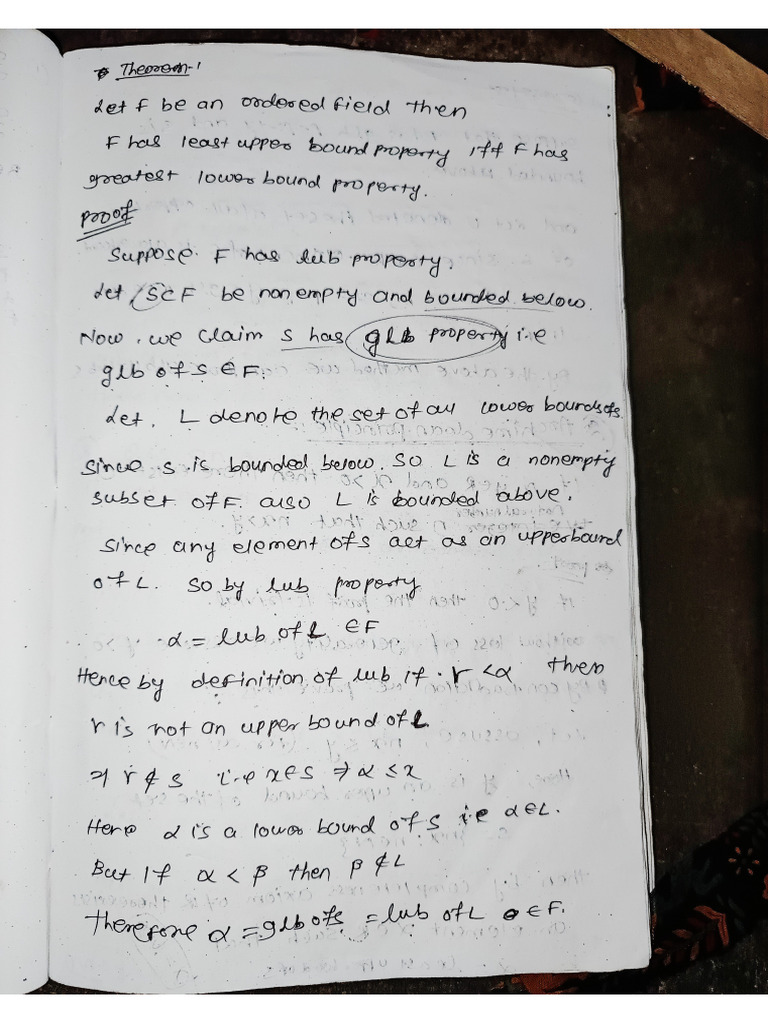 Theorem-1
Let F be an ordered field then
F has least upper bound property iff F has
greatest lower bound property.
Proof
Suppose F has lub property.
Let S⊂F be nonempty and bounded below.
Now, we claim S has glb property i.e
glb of S ∈ F.
Let, L denote the set of all lower bounds of S.
Since S is bounded below. So L is a nonempty
subset of F. also L is bounded above.
Since any element of S act as an upperbound
of L. So by lub property
α = lub of L ∈ F
Hence by definition of lub if r < α then
r is not an upper bound of L
⇒ r ∉ S i.e x∈S ⇒ α ≤ x
Here α is a lower bound of S i.e α∈L.
But if α < β then β ∉ L
Therefore α = glb of S = lub of L ∈ F.